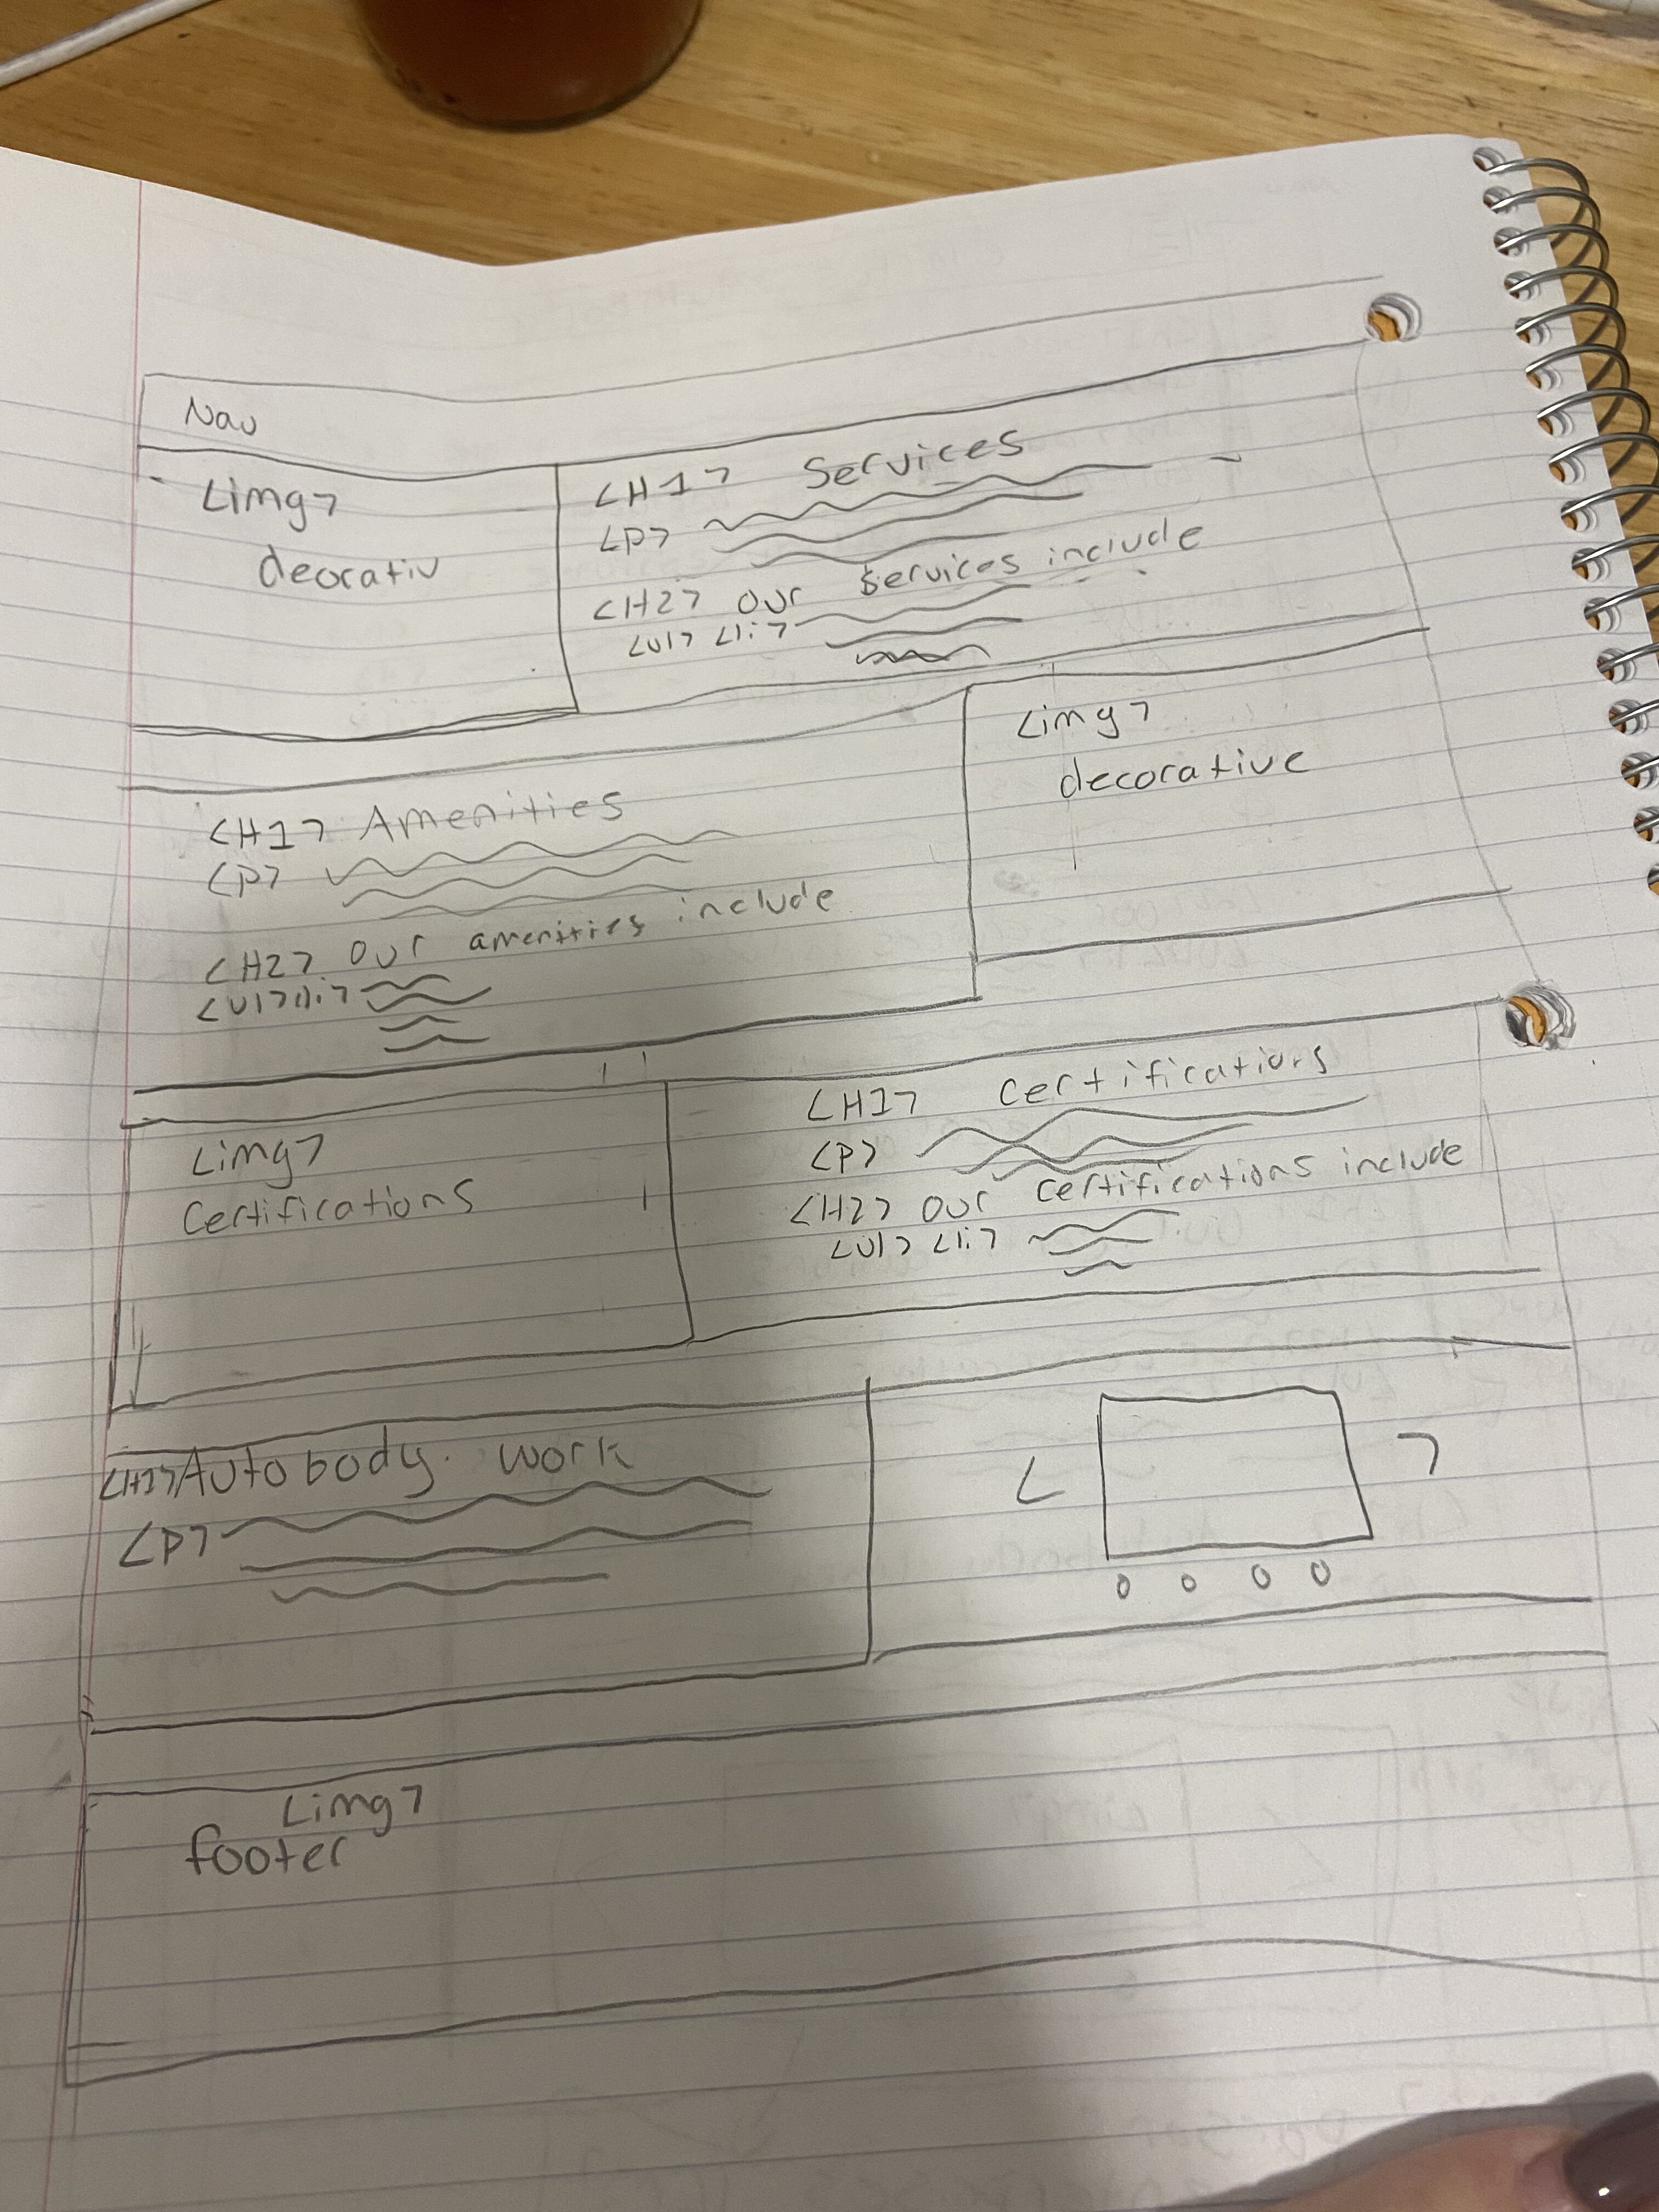 Nav
<img>
deorativ
<H1> Services
<P>
<H2> Our Services include
<ul> <li>
<H1> Amenities
<P>
<H2> Our amenities include
<ul><li>
<img>
decorative
<img>
Certifications
<H1> Certifications
<P>
<H2> Our Certifications include
<ul> <li>
<H1>Autobody work
<P>
< >
<img>
footer